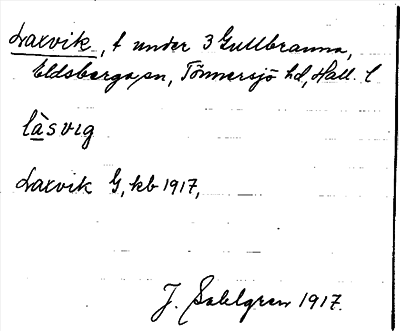 Laxvik, t under 3 Gullbranna,
Eldsberga sn, Tönnersjö hd, Hall. l
làsvig
Laxvik G, kb 1917,
J. Sahlgren 1917.